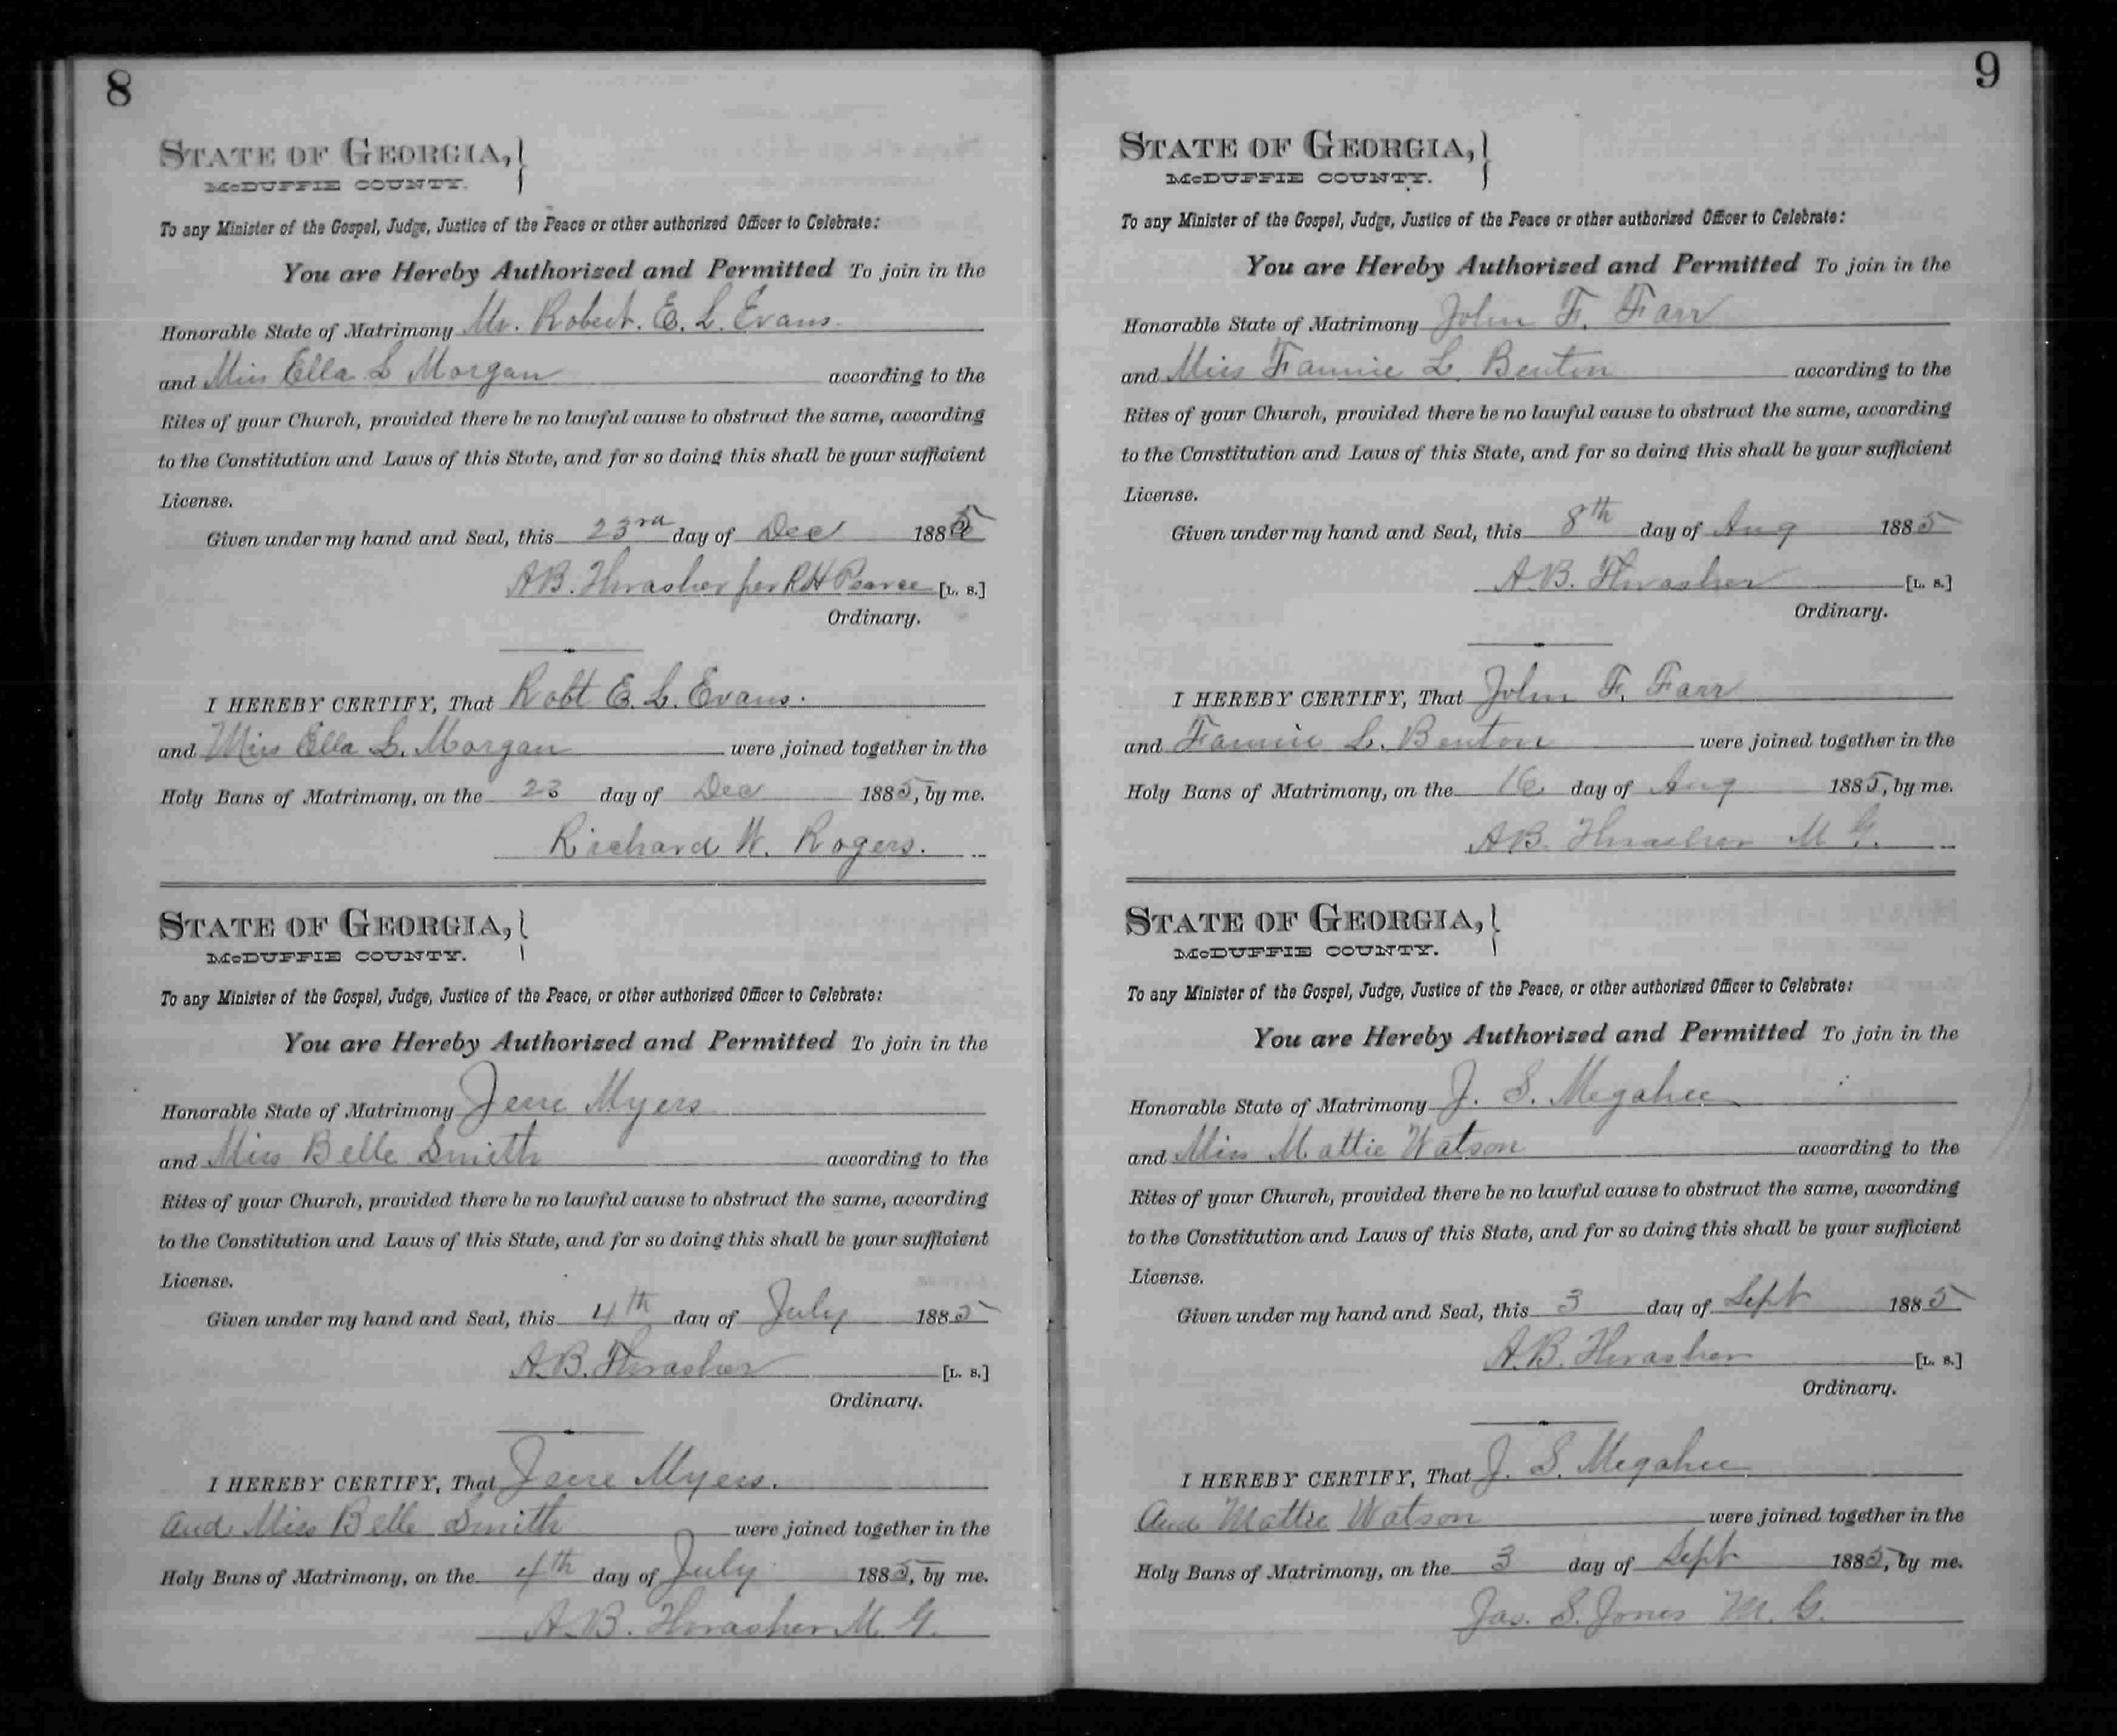 8
STATE OF GEORGIA,
McDUFFIE COUNTY.
To any Minister of the Gospel, Judge, Justice of the Peace or other authorized Officer to Celebrate:
You are Hereby Authorized and Permitted To join in the
Honorable State of Matrimony Mr. Robert. E. L. Evans.
and Miss Ella L Morgan according to the
Rites of your Church, provided there be no lawful cause to obstruct the same, according
to the Constitution and Laws of this State, and for so doing this shall be your sufficient
License.
Given under my hand and Seal, this 23rd day of Dec 1885
A.B. Thrasher per RH Pearce [L. S.]
Ordinary.
I HEREBY CERTIFY, That Robt E. L. Evans.
and Miss Ella L. Morgan were joined together in the
Holy Bans of Matrimony, on the 23 day of Dec 1885, by me.
Richard W. Rogers.
STATE OF GEORGIA,
McDUFFIE COUNTY.
To any Minister of the Gospel, Judge, Justice of the Peace, or other authorized Officer to Celebrate:
You are Hereby Authorized and Permitted To join in the
Honorable State of Matrimony Myers
and Miss Belle Smith according to the
Rites of your Church, provided there be no lawful cause to obstruct the same, according
to the Constitution and Laws of this State, and for so doing this shall be your sufficient
License.
Given under my hand and Seal, this 4th day of July 1885
A.B. Thrasher [L. S.]
Ordinary.
I HEREBY CERTIFY, That Myers.
and Miss Belle Smith were joined together in the
Holy Bans of Matrimony, on the 4th day of July 1885, by me.
A.B. Thrasher M. G.
9
STATE OF GEORGIA,
McDUFFIE COUNTY.
To any Minister of the Gospel, Judge, Justice of the Peace or other authorized Officer to Celebrate:
You are Hereby Authorized and Permitted To join in the
Honorable State of Matrimony John F. Farr
and Miss Fannie L. Benton according to the
Rites of your Church, provided there be no lawful cause to obstruct the same, according
to the Constitution and Laws of this State, and for so doing this shall be your sufficient
License.
Given under my hand and Seal, this 8th day of Aug 1885
A.B. Thrasher [L. S.]
Ordinary.
I HEREBY CERTIFY, That John F. Farr
and Fannie L. Benton were joined together in the
Holy Bans of Matrimony, on the 16 day of Aug 1885, by me.
A.B. Thrasher M G.
STATE OF GEORGIA,
McDUFFIE COUNTY.
To any Minister of the Gospel, Judge, Justice of the Peace, or other authorized Officer to Celebrate:
You are Hereby Authorized and Permitted To join in the
Honorable State of Matrimony J. S. Megahee
and Miss Mattie Watson according to the
Rites of your Church, provided there be no lawful cause to obstruct the same, according
to the Constitution and Laws of this State, and for so doing this shall be your sufficient
License.
Given under my hand and Seal, this 3 day of Sept 1885
A.B. Thrasher [L. S.]
Ordinary.
I HEREBY CERTIFY, That J. S. Megahee
and Mattie Watson were joined together in the
Holy Bans of Matrimony, on the 3 day of Sept 1885, by me.
Jas. S. Jones M. G.